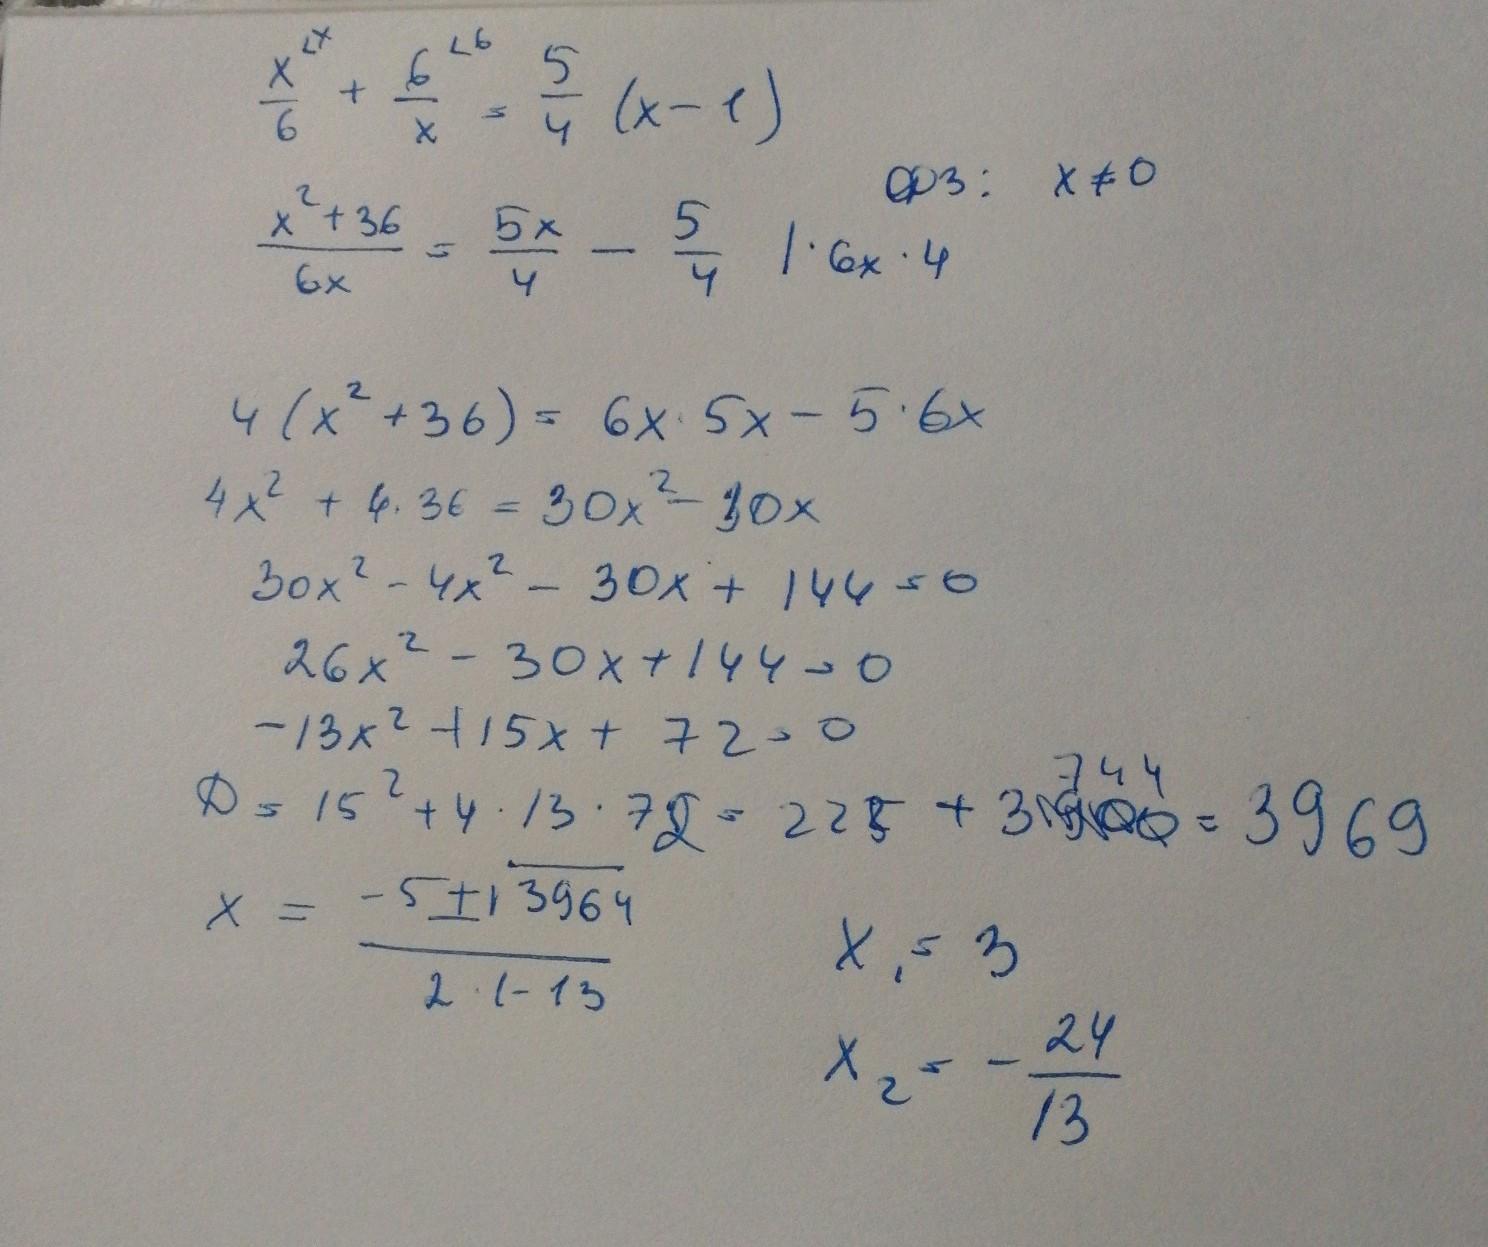 x/6 + 6/x = 5/4 (x-1)
ОДЗ: x≠0
(x²+36)/6x = 5x/4 - 5/4 |·6x·4
4(x²+36) = 6x·5x - 5·6x
4x² + 4·36 = 30x² - 30x
30x² - 4x² - 30x + 144 = 0
26x² - 30x + 144 = 0
-13x² + 15x + 72 = 0
D = 15² + 4·13·72 = 225 + 3744 = 3969
x = (-5 ± √3964)/(2·(-13
x₁ = 3
x₂ = -24/13